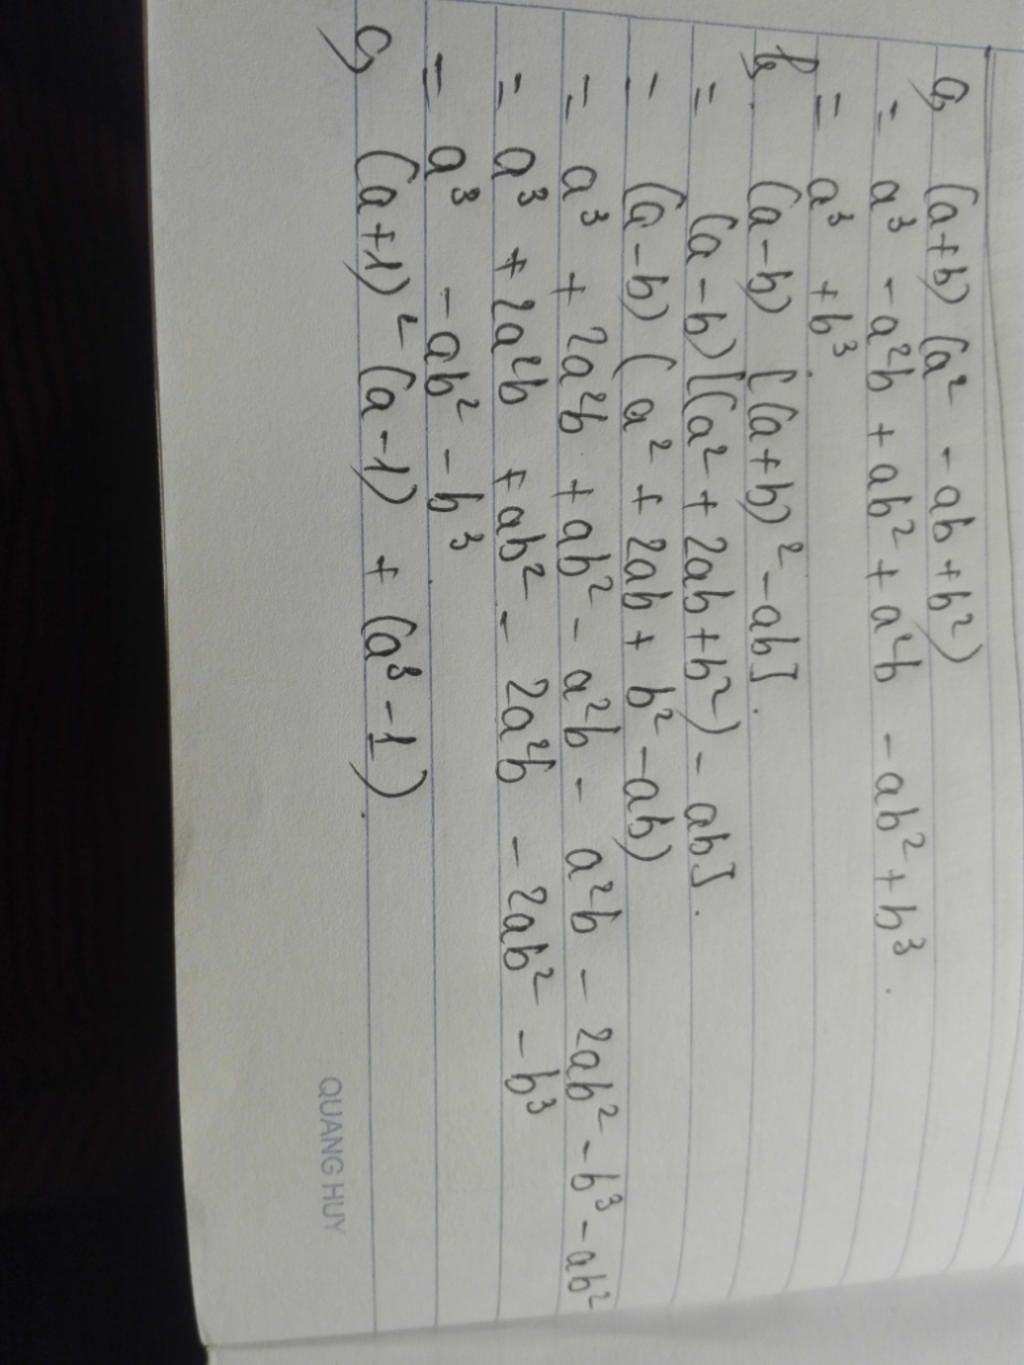 a, (a+b) (a² - ab + b²)
= a³ - a²b + ab² + a²b - ab² + b³.
= a³ + b³.
b, (a-b) [(a+b)² - ab].
= (a-b) [(a² + 2ab + b²) - ab].
= (a-b) (a² + 2ab + b² - ab)
= a³ + 2a²b + ab² - a²b - a²b - 2ab² - b³ - ab²
= a³ + 2a²b + ab² - 2a²b - 2ab² - b³
= a³ - ab² - b³.
c, (a+1)² (a-1) + (a³ - 1).
QUANG HUY